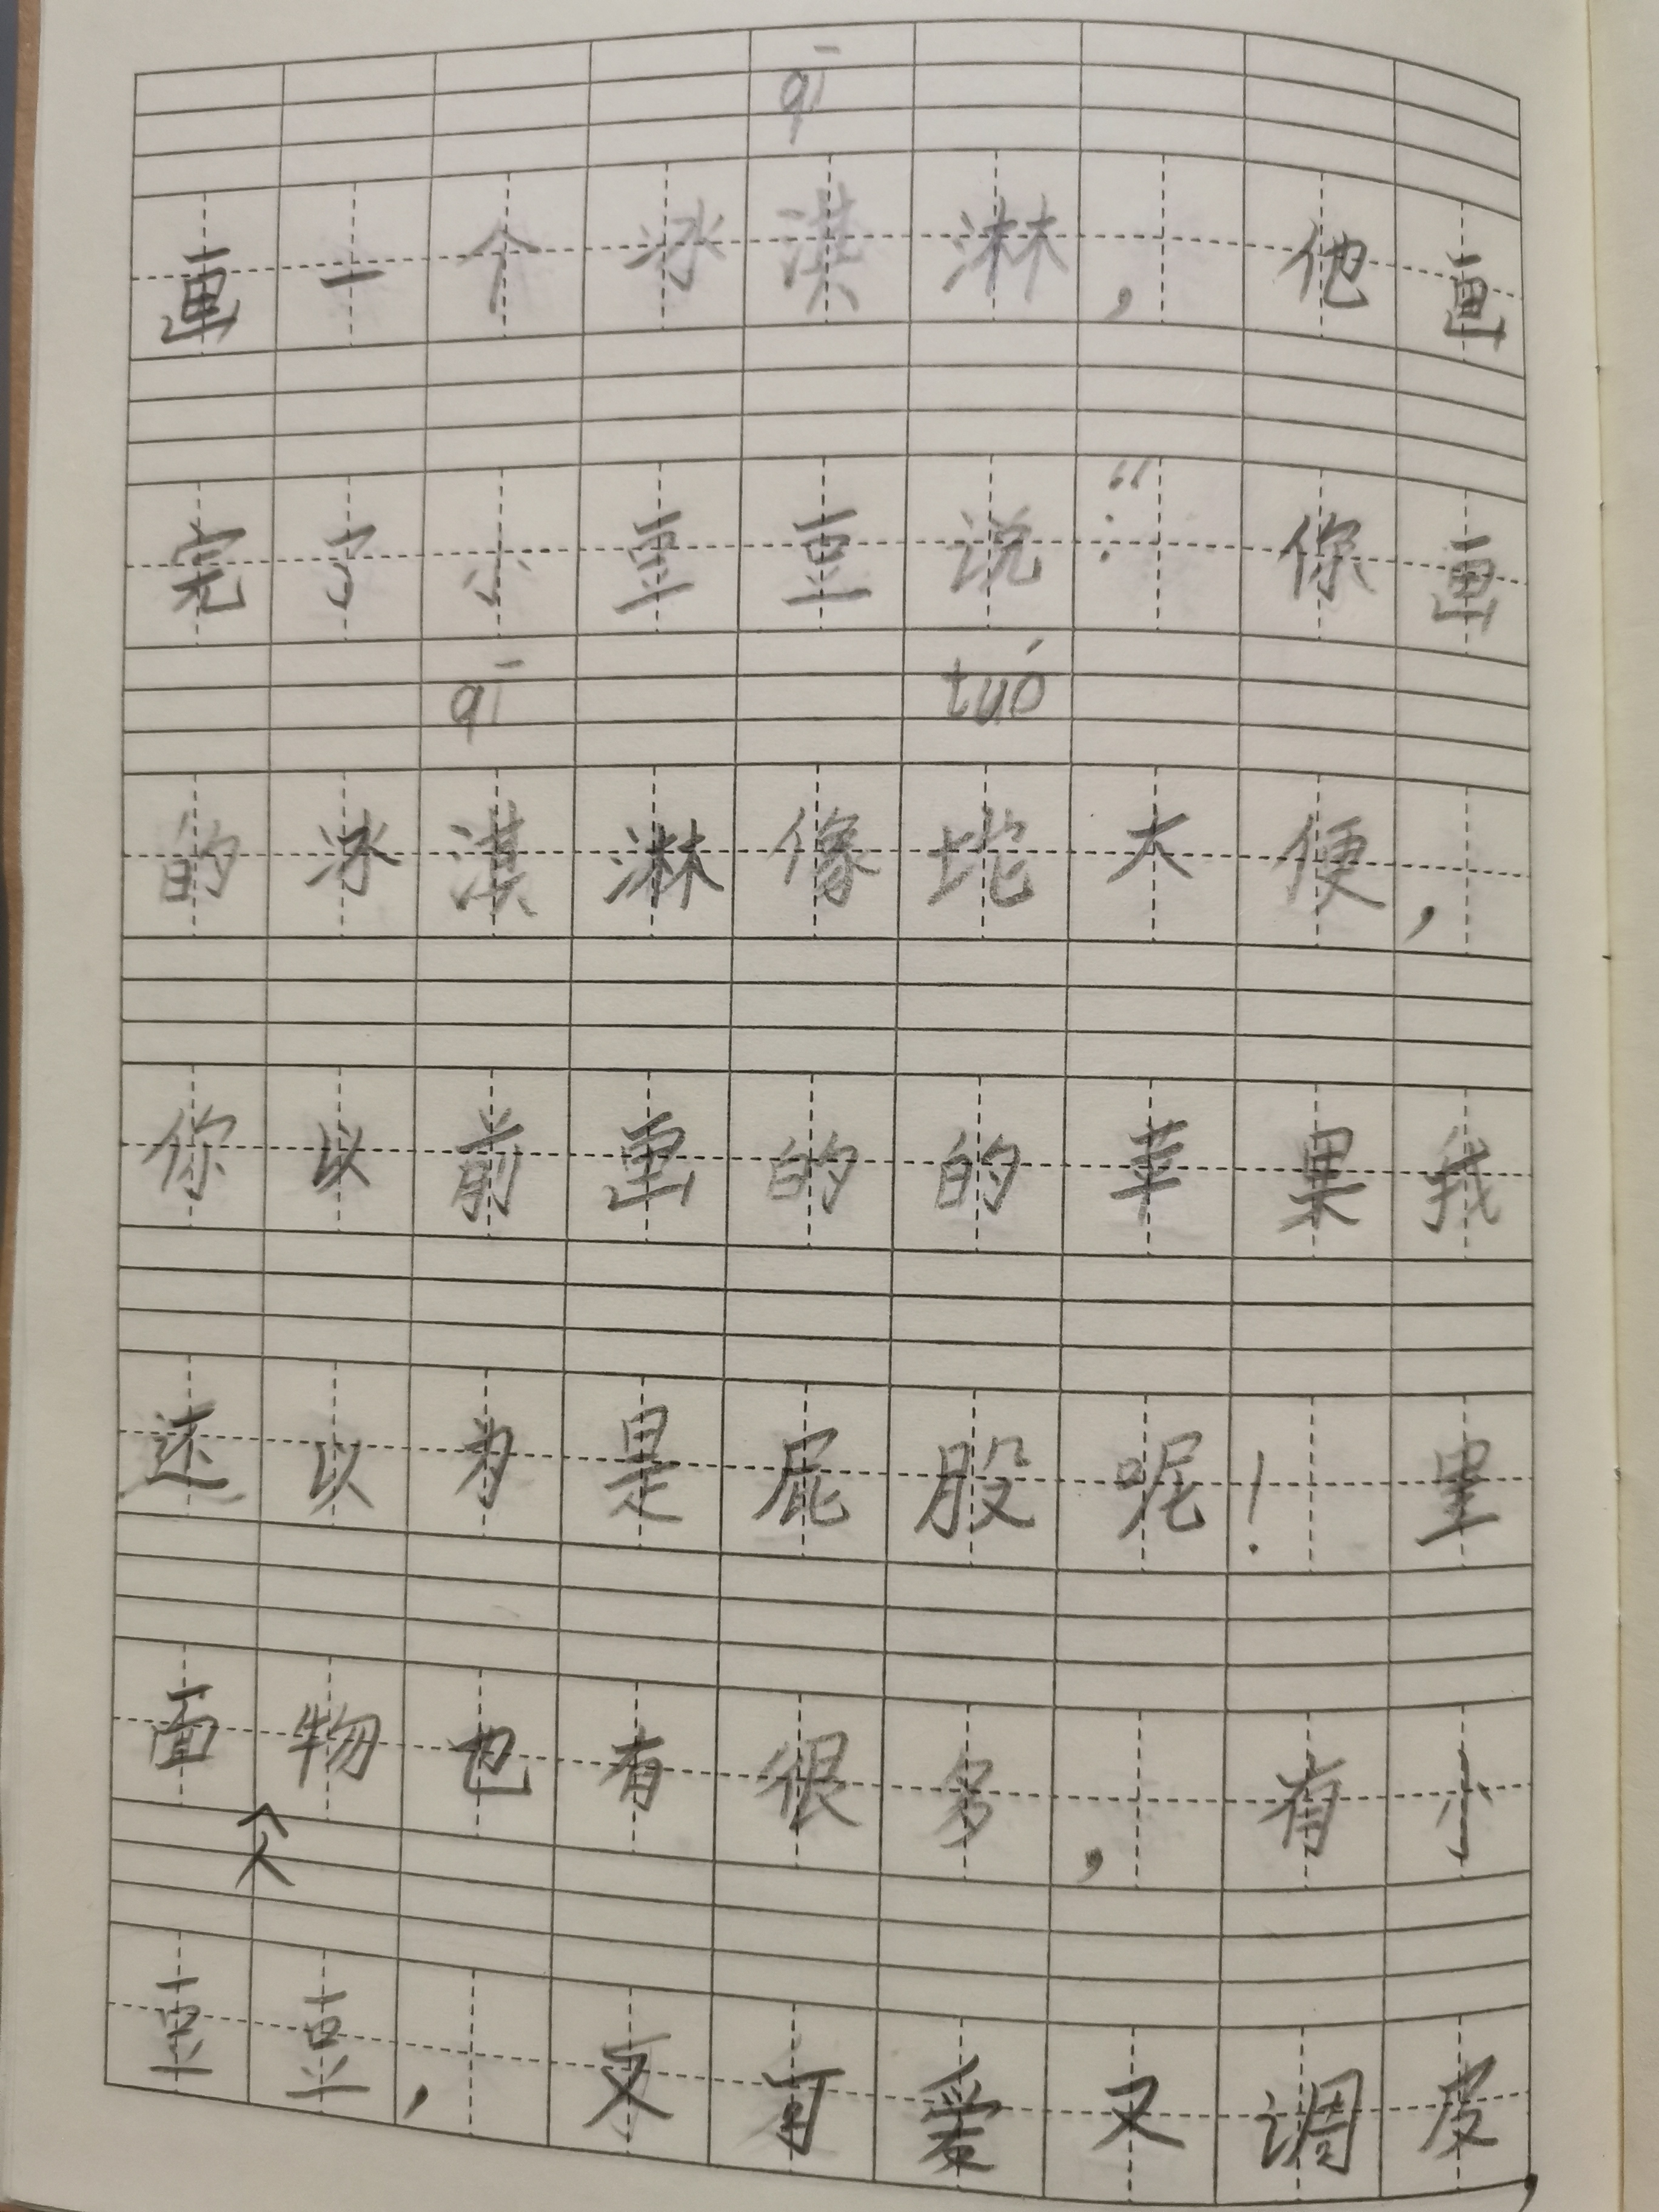 qī
画一个冰淇淋，他画
完了小豆豆说：“你画
qī tuó
的冰淇淋像坨大便，
你以前画的的苹果我
还以为是屁股呢！里
面人物也有很多，有小
豆豆，又可爱又调皮，